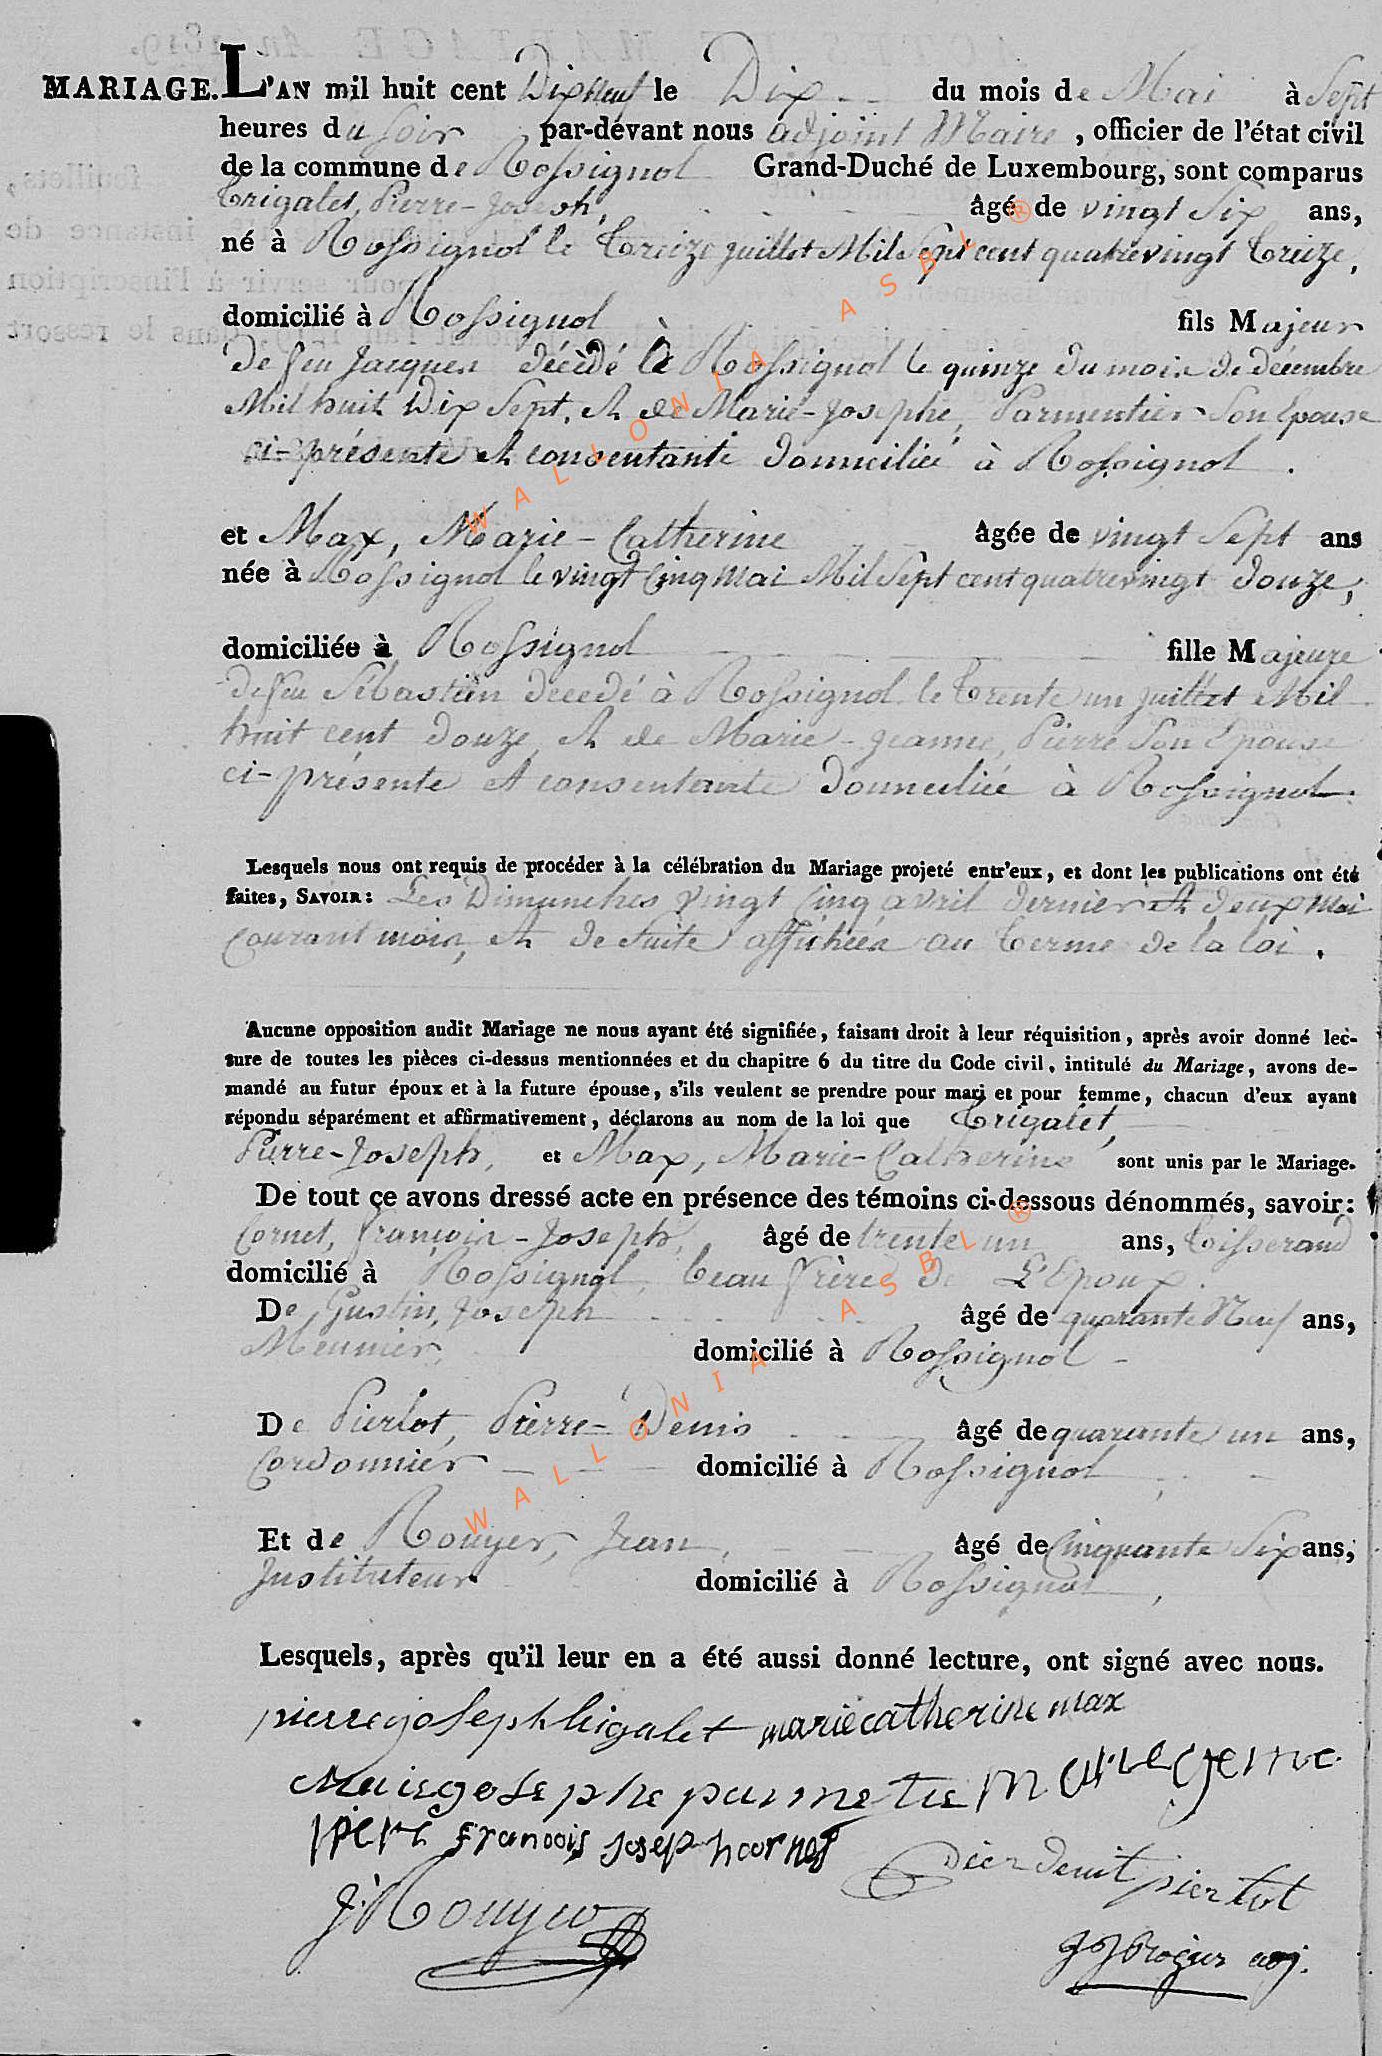 MARIAGE. L'AN mil huit cent Dix neuf le Dix du mois de Mai à Sept
heures du soir par-devant nous adjoint Maire, officier de l'état civil
de la commune de Rossignol Grand-Duché de Luxembourg, sont comparus
Trigalet, Pierre-Joseph, âgé de vingt Six ans,
né à Rossignol le Treize juillet Mil Sept cent quatre vingt Treize,
domicilié à Rossignol fils Majeur
De feu Jacques décèdé à Rossignol le quinze du mois de décembre
Mil huit Dix Sept, et de Marie-Josephe, Parmentier Son Epouse
ci-présente et consentante domiciliée à Rossignol.
et Max, Marie-Catherine âgée de vingt Sept ans
née à Rossignol le vingt Cinq Mai Mil Sept cent quatre vingt douze,
domiciliée à Rossignol fille Majeure
de feu Sébastien decedé à Rossignol le Trente un juillet Mil
huit cent douze, et de Marie-Jeanne, Pierre Son Epouse
ci-présente et consentante domiciliée à Rossignol.
Lesquels nous ont requis de procéder à la célébration du Mariage projeté entr'eux, et dont les publications ont été
faites, SAVOIR: Les Dimanches vingt Cinq avril dernier et deux Mai
Courant mois, et de Suite affichées au Terme de la loi.
Aucune opposition audit Mariage ne nous ayant été signifiée, faisant droit à leur réquisition, après avoir donné lec-
ture de toutes les pièces ci-dessus mentionnées et du chapitre 6 du titre du Code civil, intitulé du Mariage, avons de-
mandé au futur époux et à la future épouse, s'ils veulent se prendre pour mari et pour femme, chacun d'eux ayant
répondu séparément et affirmativement, déclarons au nom de la loi que Trigalet,
Pierre-Joseph, et Max, Marie-Catherine sont unis par le Mariage.
De tout ce avons dressé acte en présence des témoins ci-dessous dénommés, savoir:
Cornet, françois-Joseph, âgé de trente un ans, Tisserand
domicilié à Rossignol, beau frère de L'Epoux.
De Gustin, Joseph âgé de quarante Neuf ans,
Meunier, domicilié à Rossignol
De Pierlot, Pierre-Denis âgé de quarante un ans,
Cordonnier domicilié à Rossignol
Et de Rouyer, Jean, âgé de Cinquante Six ans,
Instituteur domicilié à Rossignol,
Lesquels, après qu'il leur en a été aussi donné lecture, ont signé avec nous.
pierre joseph trigalet marie catherine max
Marie gosephe parmetie marie gene
piere francois joseph cornet
pier denit pierlot
J. Rouyer
adj.
WALLONIA ASBL ®
WALLONIA ASBL ®